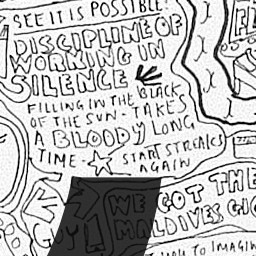 SEE IT IS POSSIBLE!
DISCIPLINE OF
WORKING IN
SILENCE
FILLING IN THE BLACK
OF THE SUN - TAKES
A BLOODY LONG
TIME - START STREAKS
AGAIN
WE GOT THE
MALDIVES GIG
TO IMAGIN